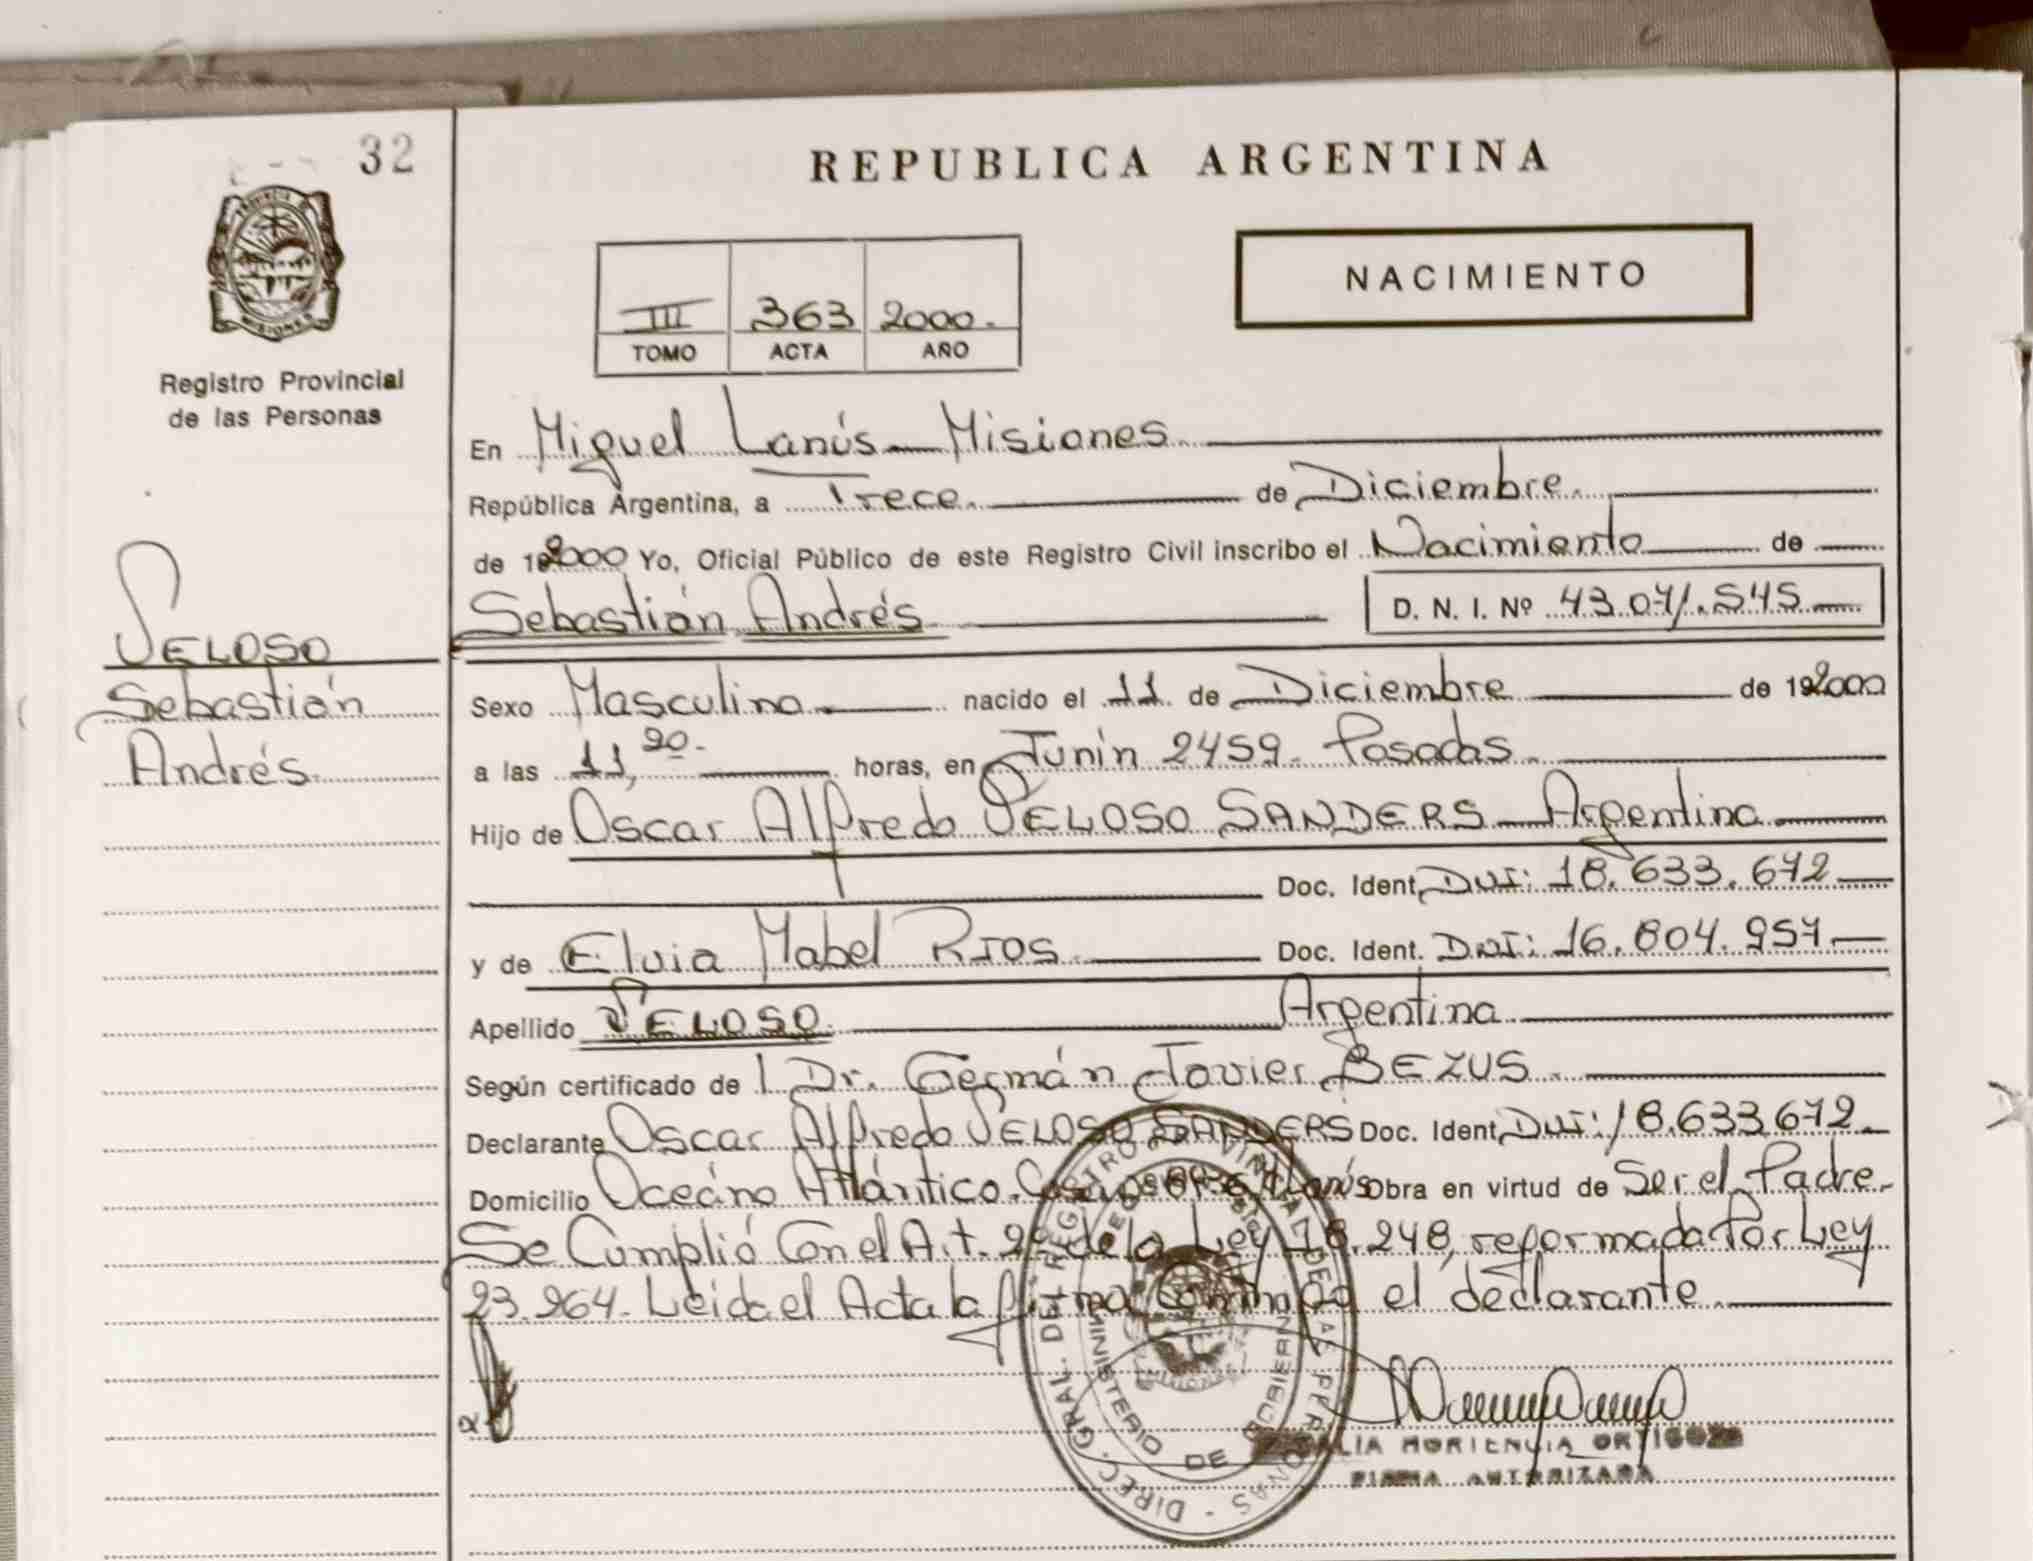 32
REPUBLICA ARGENTINA
NACIMIENTO
III 363 2000.
TOMO ACTA AÑO
PROVINCIA DE
MISIONES
Registro Provincial
de las Personas
En Miguel Lanús Misiones
República Argentina, a Trece. de Diciembre.
de 2000 Yo, Oficial Público de este Registro Civil inscribo el Nacimiento de
Sebastián Andrés D. N. I. Nº 43.071.545
VELOSO
Sebastián
Andrés.
Sexo Masculino nacido el 11 de Diciembre de 192000
a las 11,20. horas, en Junín 2459. Posadas.
Hijo de Oscar Alfredo VELOSO SANDERS Argentino
Doc. Ident. DNI: 18.633.672
y de Elvia Mabel RIOS. Doc. Ident. DNI: 16.804.957
Apellido VELOSO. Argentina
Según certificado de l Dr. Germán Javier BEZUS.
Declarante Oscar Alfredo VELOSO SANDERS Doc. Ident. DNI: 18.633.672.
Domicilio Oceáno Atlántico. Lanús Obra en virtud de Ser el Padre.
Se Cumplió Con el Art. 2º de la Ley 18.248, reformada Por Ley
23.264. Leida el Acta la firma Conmigo el declarante.
DIREC. GRAL. DEL REGISTRO PROVINCIAL DE LAS PERSONAS
MINISTERIO DE GOBIERNO
HORTENCIA ORTIGOZA
FIRMA AUTORIZADA